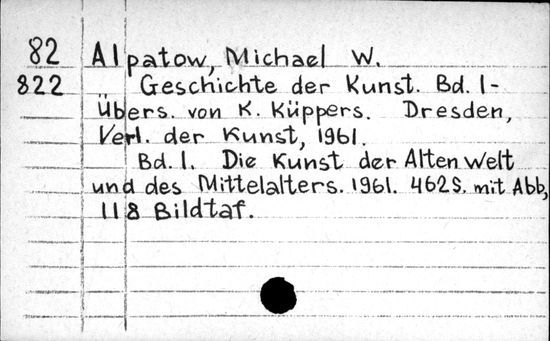 82 Alpatow, Michael W.
822 Geschichte der Kunst. Bd. 1-
Übers. von K. Küppers. Dresden,
Verl. der Kunst, 1961.
Bd. 1. Die Kunst der Alten Welt
und des Mittelalters. 1961. 462S. mit Abb,
118 Bildtaf.